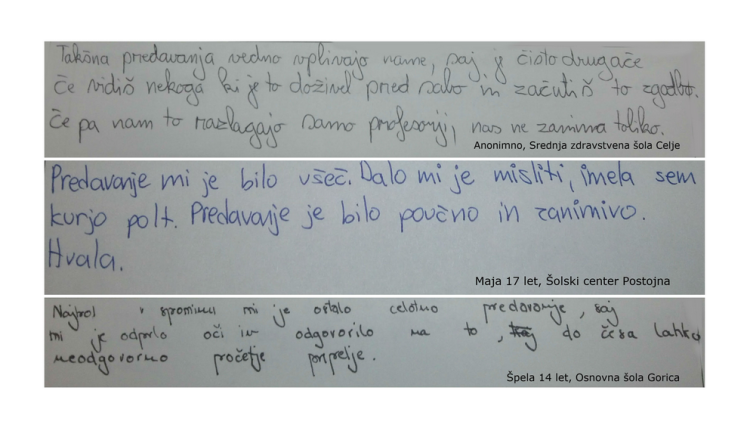 Takšna predavanja vedno vplivajo name, saj je čisto drugače
če vidiš nekoga ki je to doživel pred sabo in začutiš to zgodbo.
Če pa nam to razlagajo samo profesorji, nas ne zanima toliko.
Anonimno, Srednja zdravstvena šola Celje
Predavanje mi je bilo všeč. Dalo mi je misliti, imela sem
kurjo polt. Predavanje je bilo poučno in zanimivo.
Hvala.
Maja 17 let, Šolski center Postojna
Najbol v spominu mi je ostalo celotno predavanje, saj
mi je odprlo oči in odgovorilo na to, do česa lahko
neodgovorno početje pripelje.
Špela 14 let, Osnovna šola Gorica